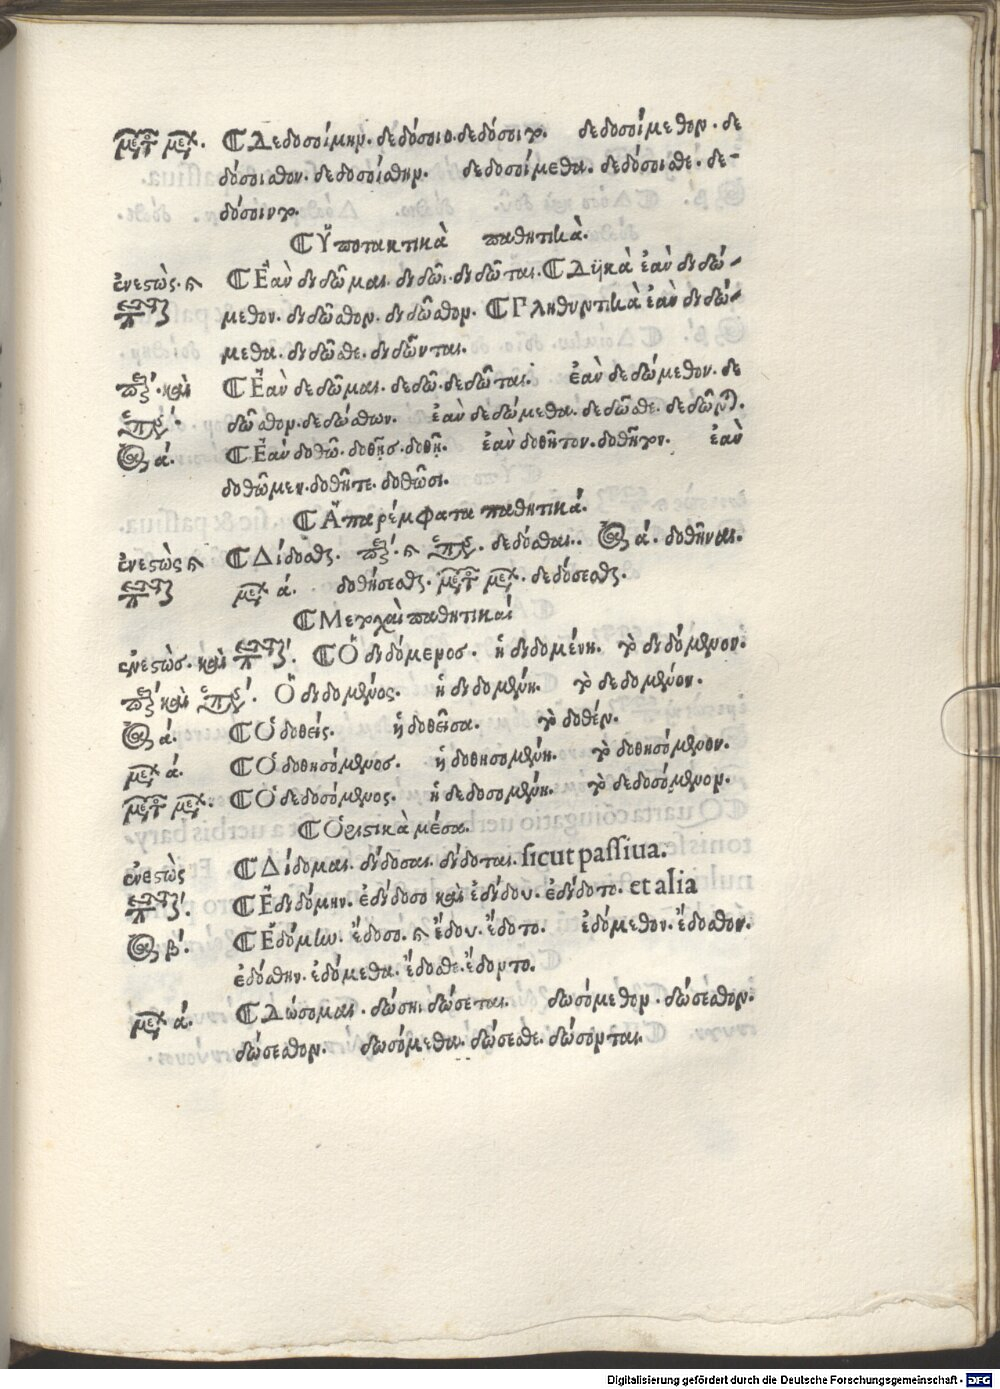 Δεδοσοίμην. δεδόσοιο. δεδόσοιτο. δεδοσοίμεθον. δε
δόσοισθον. δεδοσοίσθην. δεδοσοίμεθα. δεδόσοισθε. δε-
δόσοιντο.
Ὑποτακτικὰ παθητικὰ.
ἐνεστὼς. Ἐὰν διδῶμαι. διδῶι. διδῶται. Δϋϊκὰ ἐὰν διδώ-
μεθον. διδῶσθον. διδῶσθον. Πληθυντικὰ ἐὰν διδώ-
μεθα. διδῶσθε. διδῶνται.
Ἐὰν δεδῶμαι. δεδῶ. δεδῶται. ἐὰν δεδώμεθον. δε
δῶσθον. δεδώσθων. ἐὰν δεδώμεθα. δεδῶσθε. δεδῶνται.
ά. Ἐὰν δοθῶ. δοθῇσ. δοθῇ. ἐὰν δοθῆτον. δοθῆτον. ἐὰν
δοθῶμεν. δοθῆτε. δοθῶσι.
Ἀπαρέμφατα παθητικά.
ἐνεστὼς Δίδοσθαι. δεδόσθαι. ά. δοθῆναι.
ά. δοθήσεσθαι. δεδόσεσθαι.
Μετοχαὶ παθητικαί
ἐνεστὼσ. καὶ Ὁ διδόμενοσ. ἡ διδομένη. τὸ διδόμενον.
καὶ Ὁ διδομένος. ἡ διδομένη. τὸ δεδομένον.
ά. Ὁ δοθείς. ἡ δοθεῖσα. τὸ δοθέν.
ά. Ὁ δοθησόμενοσ. ἡ δοθησομένη. τὸ δοθησόμενον.
Ὁ δεδοσόμενος. ἡ δεδοσομένη. τὸ δεδοσόμενον.
Ὁριστικὰ μέσα.
ἐνεστὼς Δίδομαι. δίδοσαι. δίδοται. sicut passiua.
Ἐδιδόμην. ἐδίδοσο καὶ ἐδίδου. ἐδίδοτο. et alia
β΄. Ἐδόμην. ἔδοσο. ἔδου. ἔδοτο. ἐδόμεθον. ἔδοσθον.
ἐδόσθην. ἐδόμεθα. ἔδοσθε. ἔδοντο.
ά. Δώσομαι. δώσηι δώσεται. δωσόμεθον. δώσεσθον.
δώσεσθον. δωσόμεθα. δώσεσθε. δώσονται.
Digitalisierung gefördert durch die Deutsche Forschungsgemeinschaft - DFG